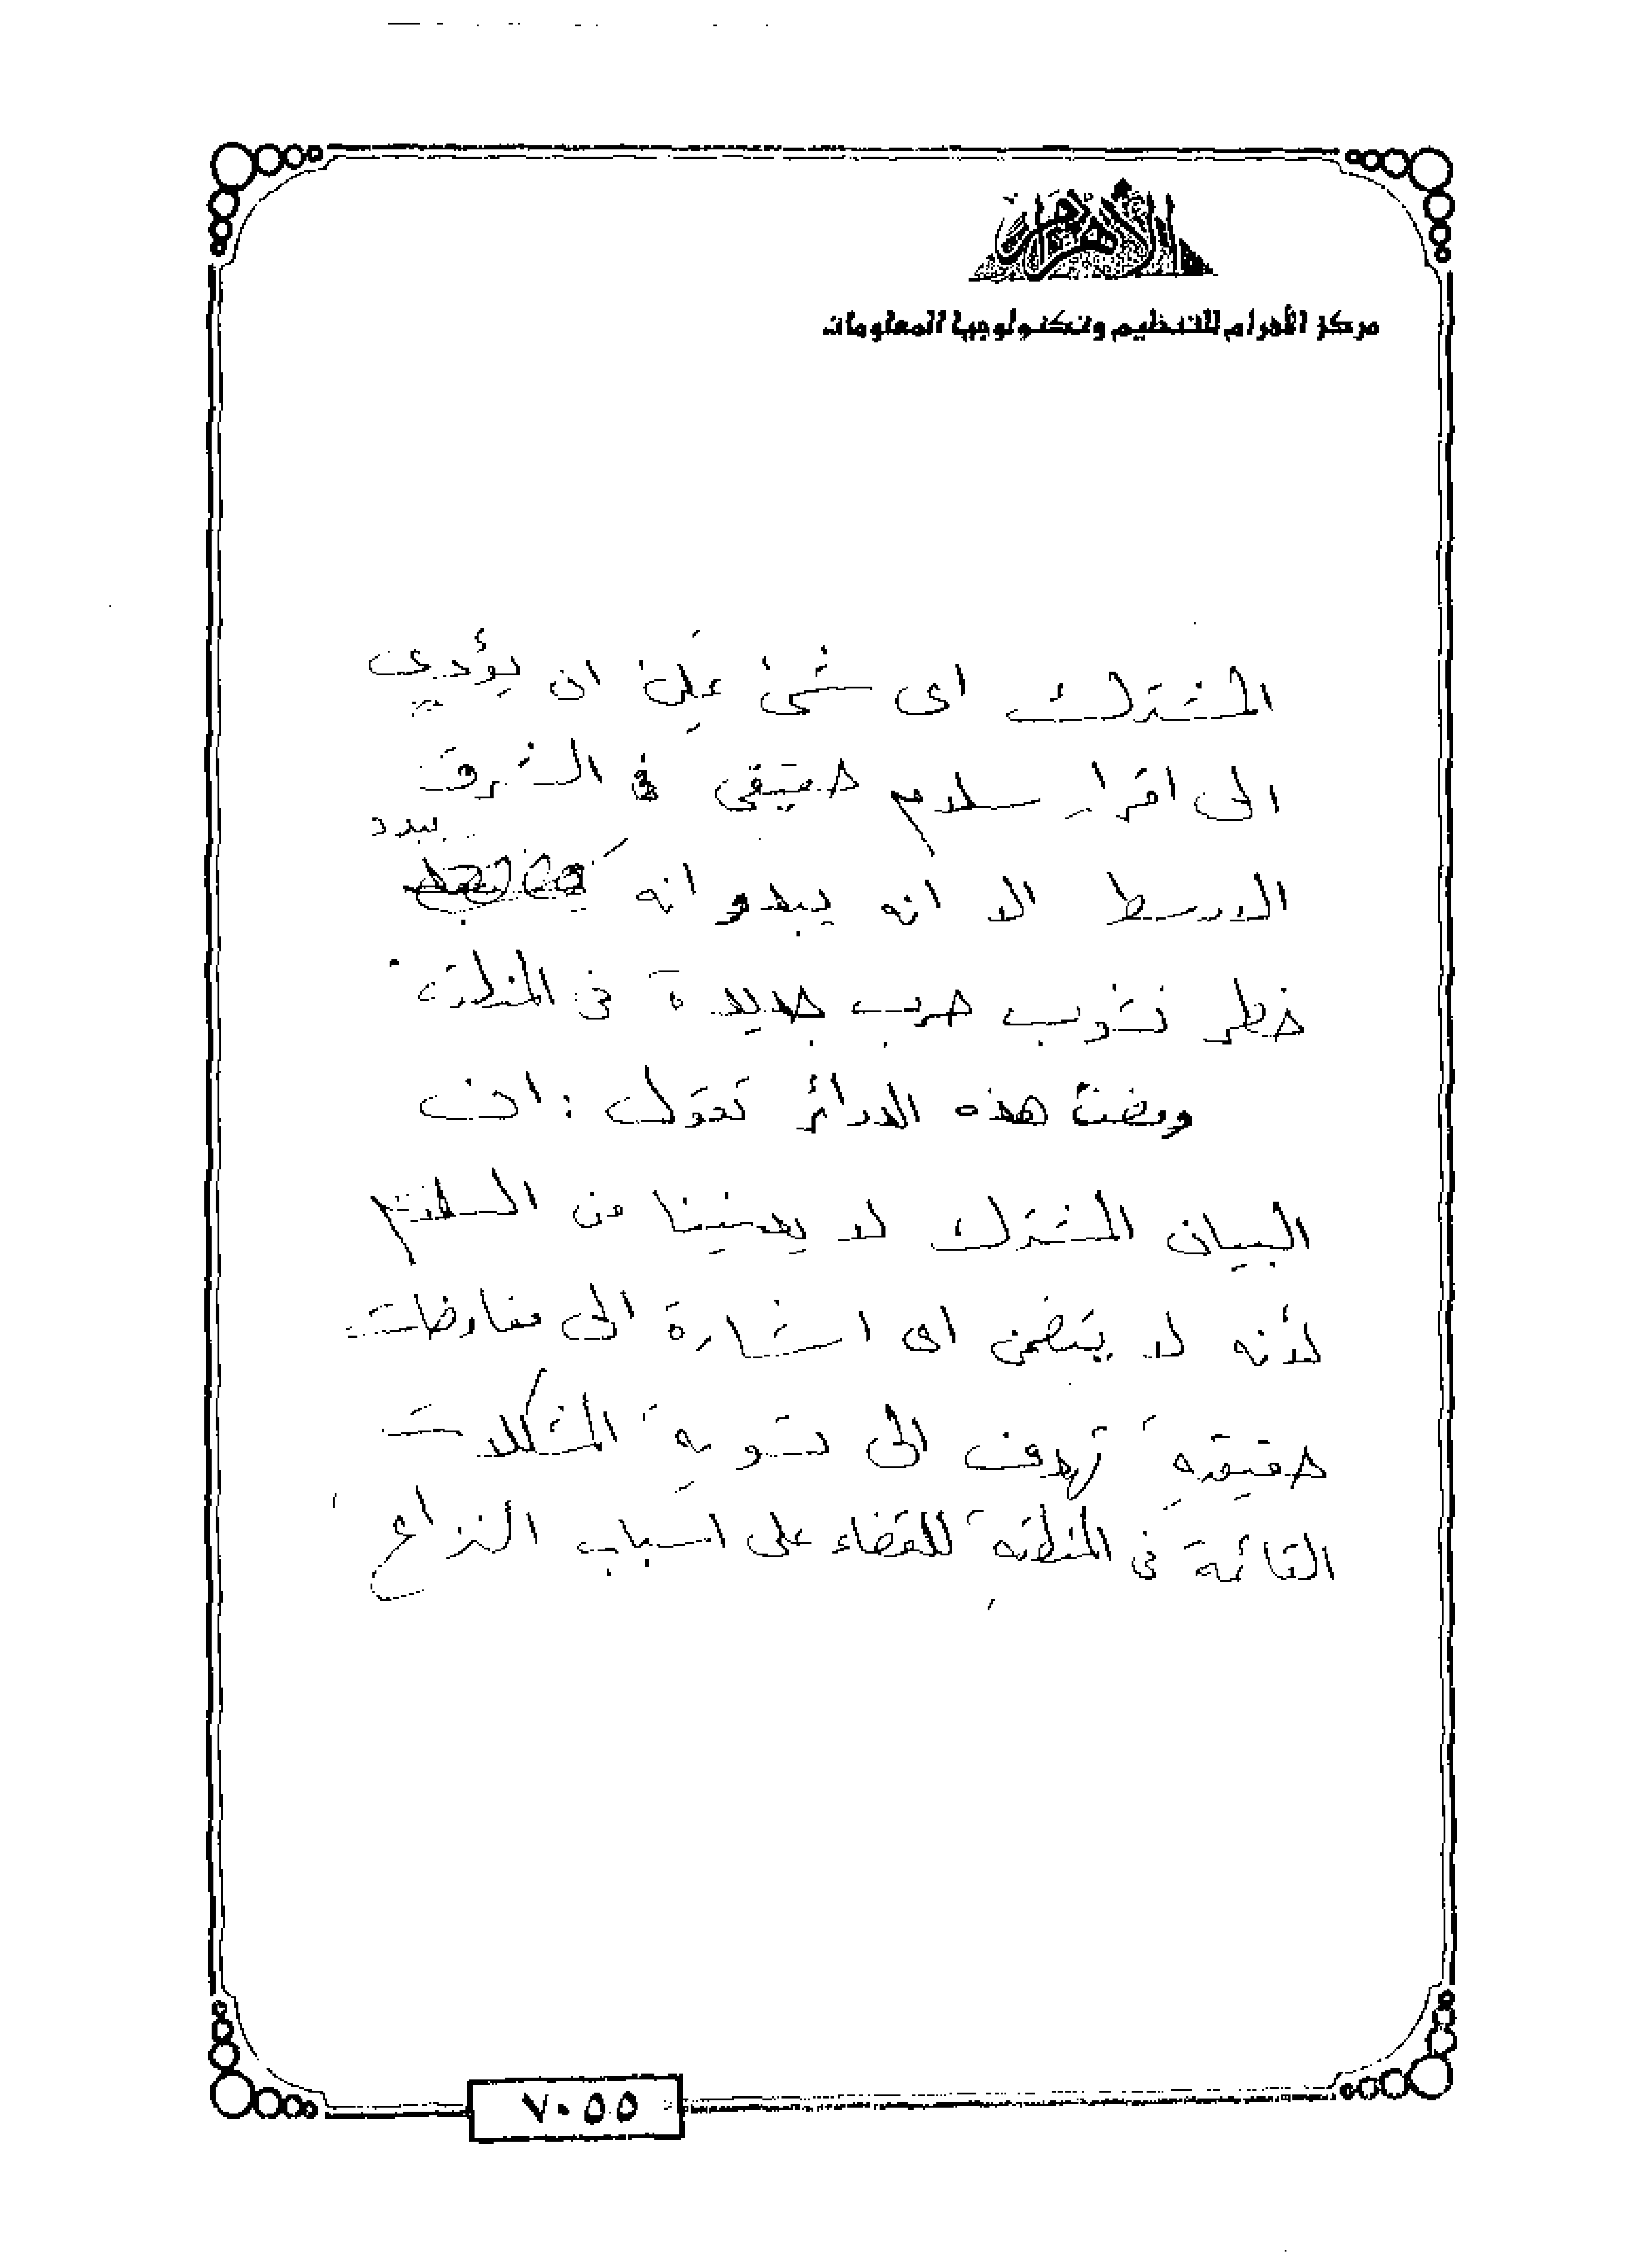 الأهرام
مركز الأهرام للتنظيم وتكنولوجيا المعلومات
المشترك اى شئ يمكن ان يؤدى
الى اقرار سلام حقيقى فى الشرق
الاوسط الا انه يبدو انه يبدد
خطر نشوب حرب جديدة فى المنطقة .
ومضت هذه الدوائر تقول : ان
البيان المشترك لا يدنينا من السلام
لأنه لا يتضمن اى اشارة الى مفاوضات
حقيقية تهدف الى تسوية المشكلات
القائمة فى المنطقة للقضاء على اسباب النزاع
٧٠٥٥